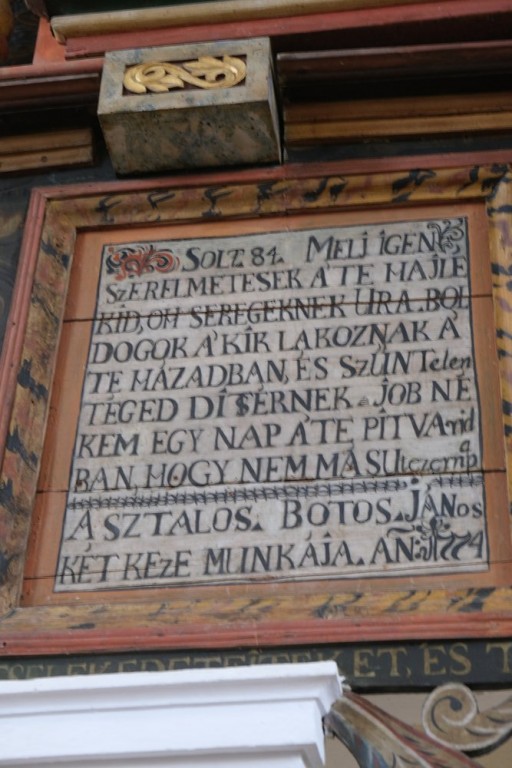 SOLT. 84. MELJ IGEN
SZERELMETESEK A'TE HAJLÉ
KID, OH SEREGEKNEK URA. BOL
DOGOK A'KIK LAKOZNAK A'
TE HÁZADBAN, ÉS SZÜNTelen
TÉGED DÍTSÉRNEK. JOB NÉ
KEM EGY NAP A'TE PITVArid
BAN, HOGY NEM MÁSUtt
A SZTALOS. BOTOS. JÁNos
KÉT KEZE MUNKÁJA. AN: 1774
ÉS